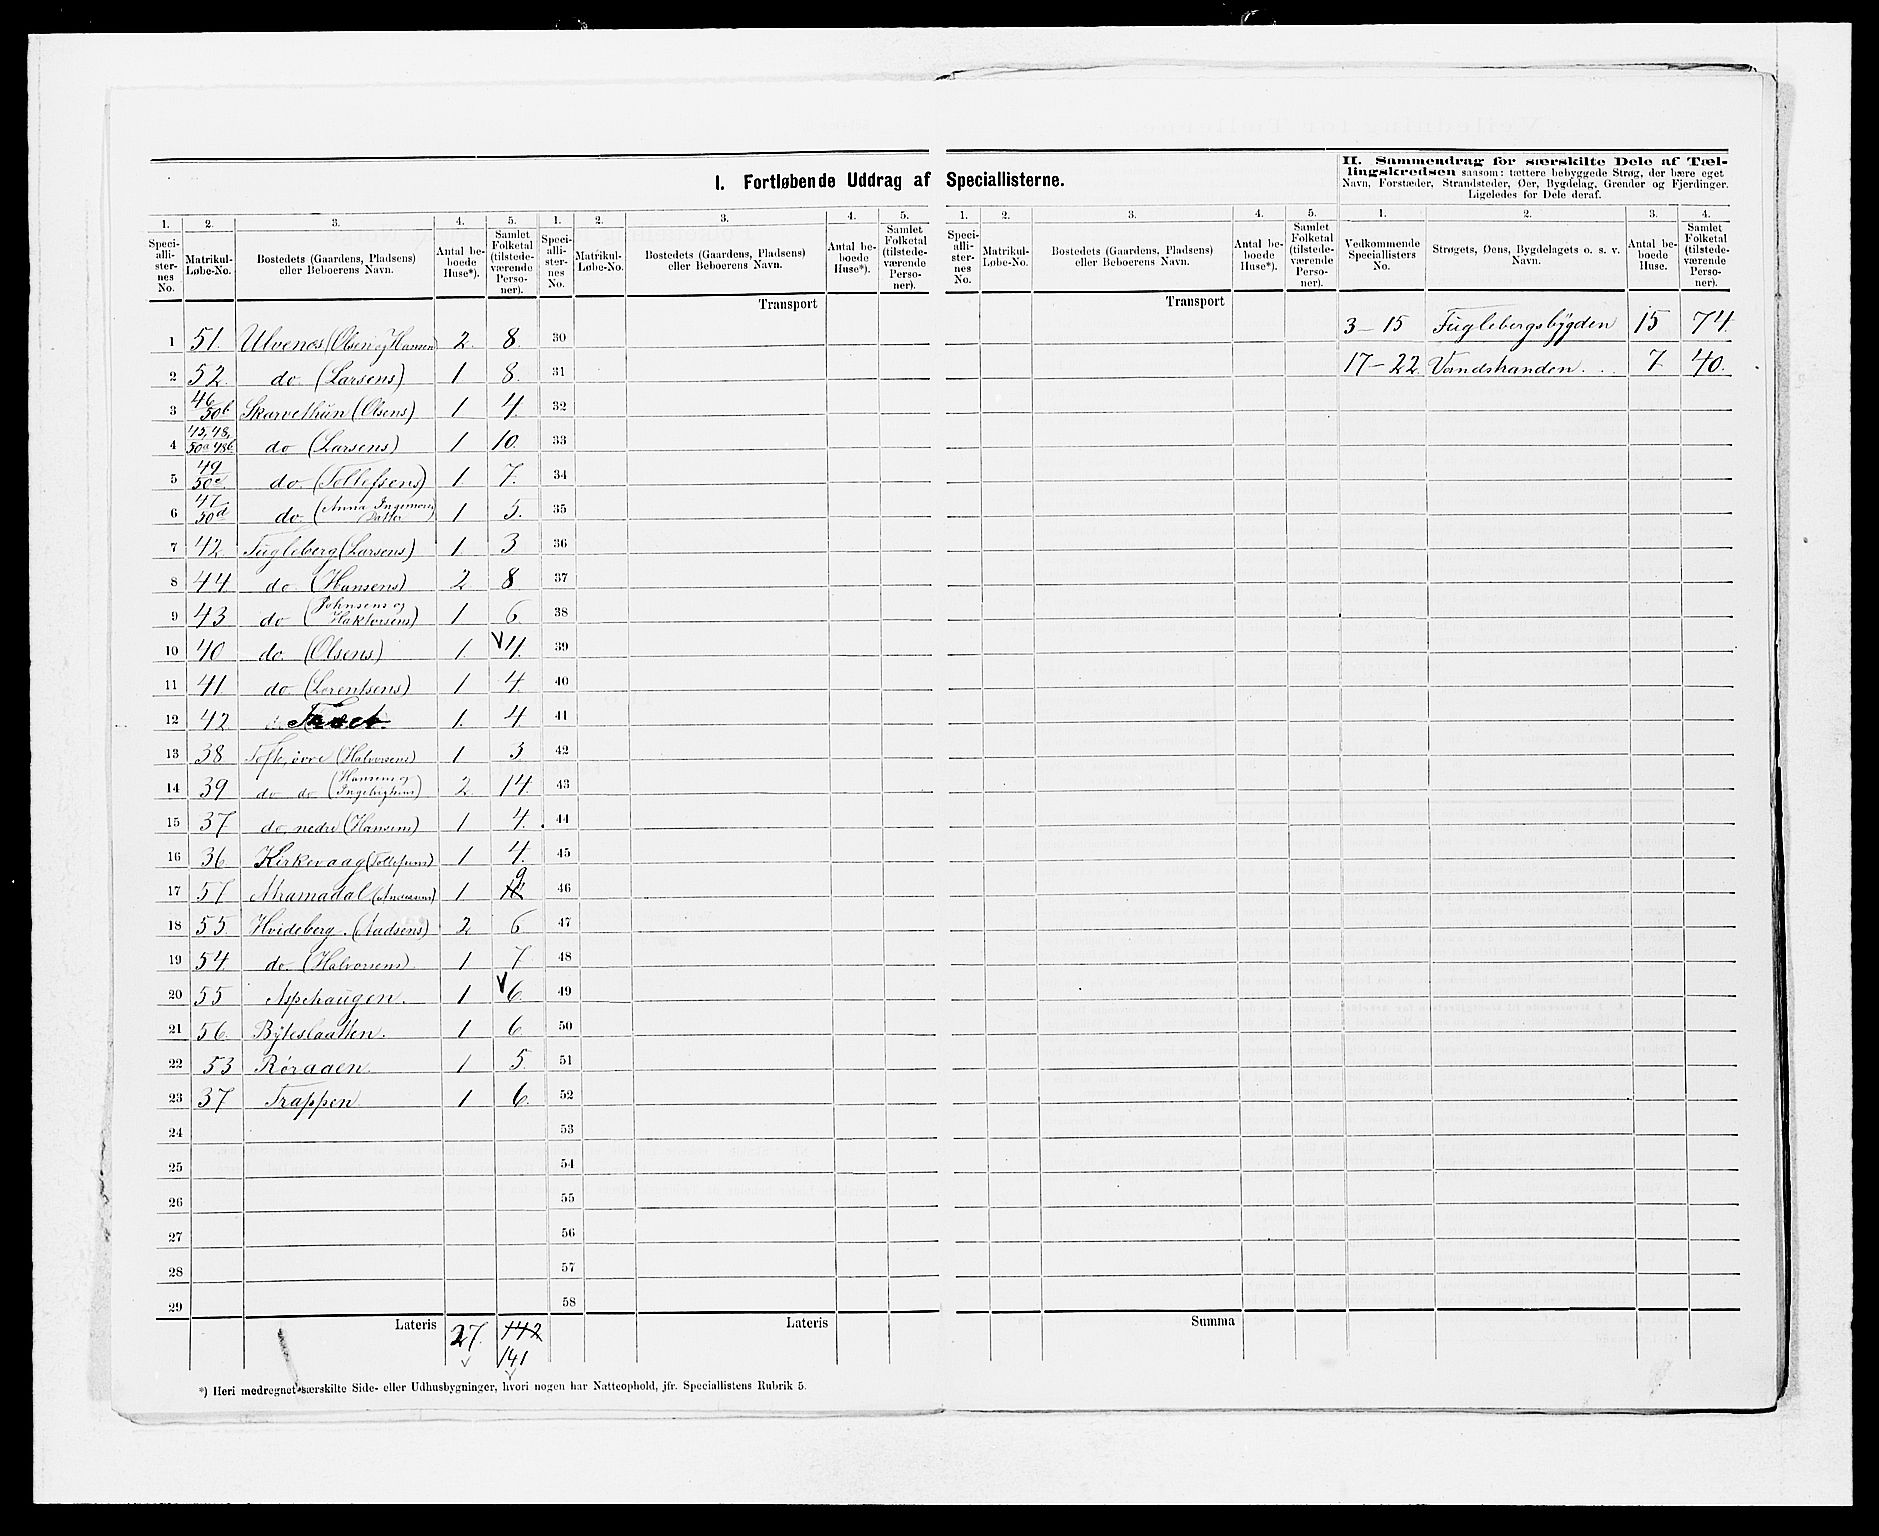 I. Fortløbende Uddrag af Speciallisterne.
II. Sammendrag for særskilte Dele af Tæl-
lingskredsen saasom: tættere bebyggede Strøg, der bære eget
Navn, Forstæder, Strandsteder, Øer, Bygdelag, Grender og Fjerdinger.
Ligeledes for Dele deraf.
1. 2. 3. 4. 5. 1. 2. 3. 4. 5. 1. 2. 3. 4. 5. 1. 2. 3. 4.
Speci-alli-ster-nes No. Matrikul-Løbe-No. Bostedets (Gaardens, Pladsens) eller Beboerens Navn. Antal be-boede Huse*). Samlet Folketal (tilstede-værende Perso-ner).
Speci-alli-ster-nes No. Matrikul-Løbe-No. Bostedets (Gaardens, Pladsens) eller Beboerens Navn. Antal be-boede Huse*). Samlet Folketal (tilstede-værende Perso-ner).
Speci-alli-ster-nes No. Matrikul-Løbe-No. Bostedets (Gaardens, Pladsens) eller Beboerens Navn. Antal be-boede Huse*). Samlet Folketal (tilstede-værende Perso-ner).
Vedkommende Speciallisters No. Strøgets, Øens, Bygdelagets o. s. v. Navn. Antal be-boede Huse. Samlet Folketal (tilstede-værende Perso-ner).
Transport Transport
1 51. Ulvenes (Olsen og Hansen) 2. 8. 30 3–15 Fuglebergsbygden 15 74.
2 52. do. (Larsens) 1 8. 31 17–22 Vandstranden. 7 40.
3 46/50b Skarvethun (Olsens) 1 4. 32
4 45, 48, 50a 48b do (Larsens) 1 10. 33
5 49/50c do. (Tollefsens) 1. 7. 34
6 47/50d do. (Anna Ingemors Datter) 1 5. 35
7 42. Fugleberg (Larsens) 1. 3 36
8 44. do. (Hansens) 2 8 37
9 43 do (Johnsens og Haktorsens) 1 6. 38
10 40 do. (Olsens) 1. 4. 39
11 41. do (Lorentsens) 1 4. 40
12 42. 1. 4. 41
13 38 Toft, övre (Halvorsens) 1 3 42
14 39 do do (Hansens og Ingebrigtsens) 2. 14. 43
15 37 do. nedre (Hansens) 1 4. 44
16 36. Kirkevaag (Tollefsens) 1 4. 45
17 57. Mramadal (Andersens) 1 9 46
18 55. Hvideberg. (Aadsens) 2 6 47
19 54. do. (Halvorsens) 1 7 48
20 55 Aspehaugen. 1 6. 49
21 56. Byteslaatten. 1 6. 50
22 53 Röraaen 1 5. 51
23 37 Trappen 1 6. 52
24 53
25 54
26 55
27 56
28 57
29 58
Lateris 27. 142 Lateris Summa
141
*) Heri medregnet særskilte Side- eller Udhusbygninger, hvori nogen har Natteophold, jfr. Speciallistens Rubrik 5.